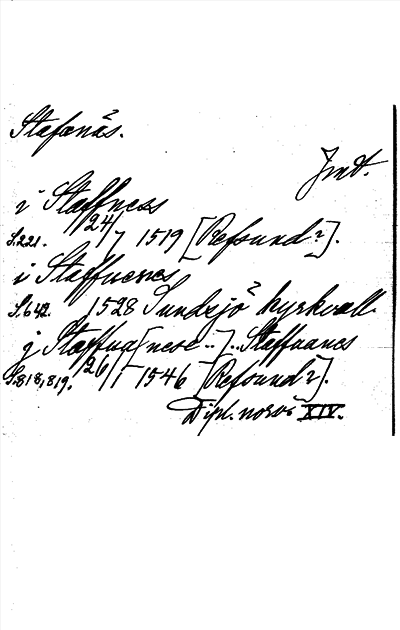 Stafanäs.
Jmt.
i Staffness
S. 221. 24/7 1519 [Refsund?].
i Staffnenes
S. 642. 1528 Sundsjö kyrkvall.
j Staffna[nese ..] .. Staffnanes
S. 818, 819. 26/1 1546 [Refsund?].
Dipl. norv. XIV.